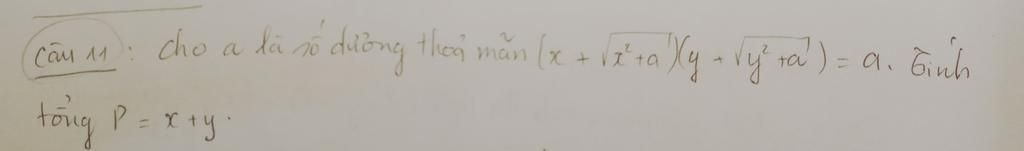 Câu 11: Cho a là số dương thoả mãn (x + √(x² + a))(y + √(y² + a)) = a. Tính
tổng P = x + y.